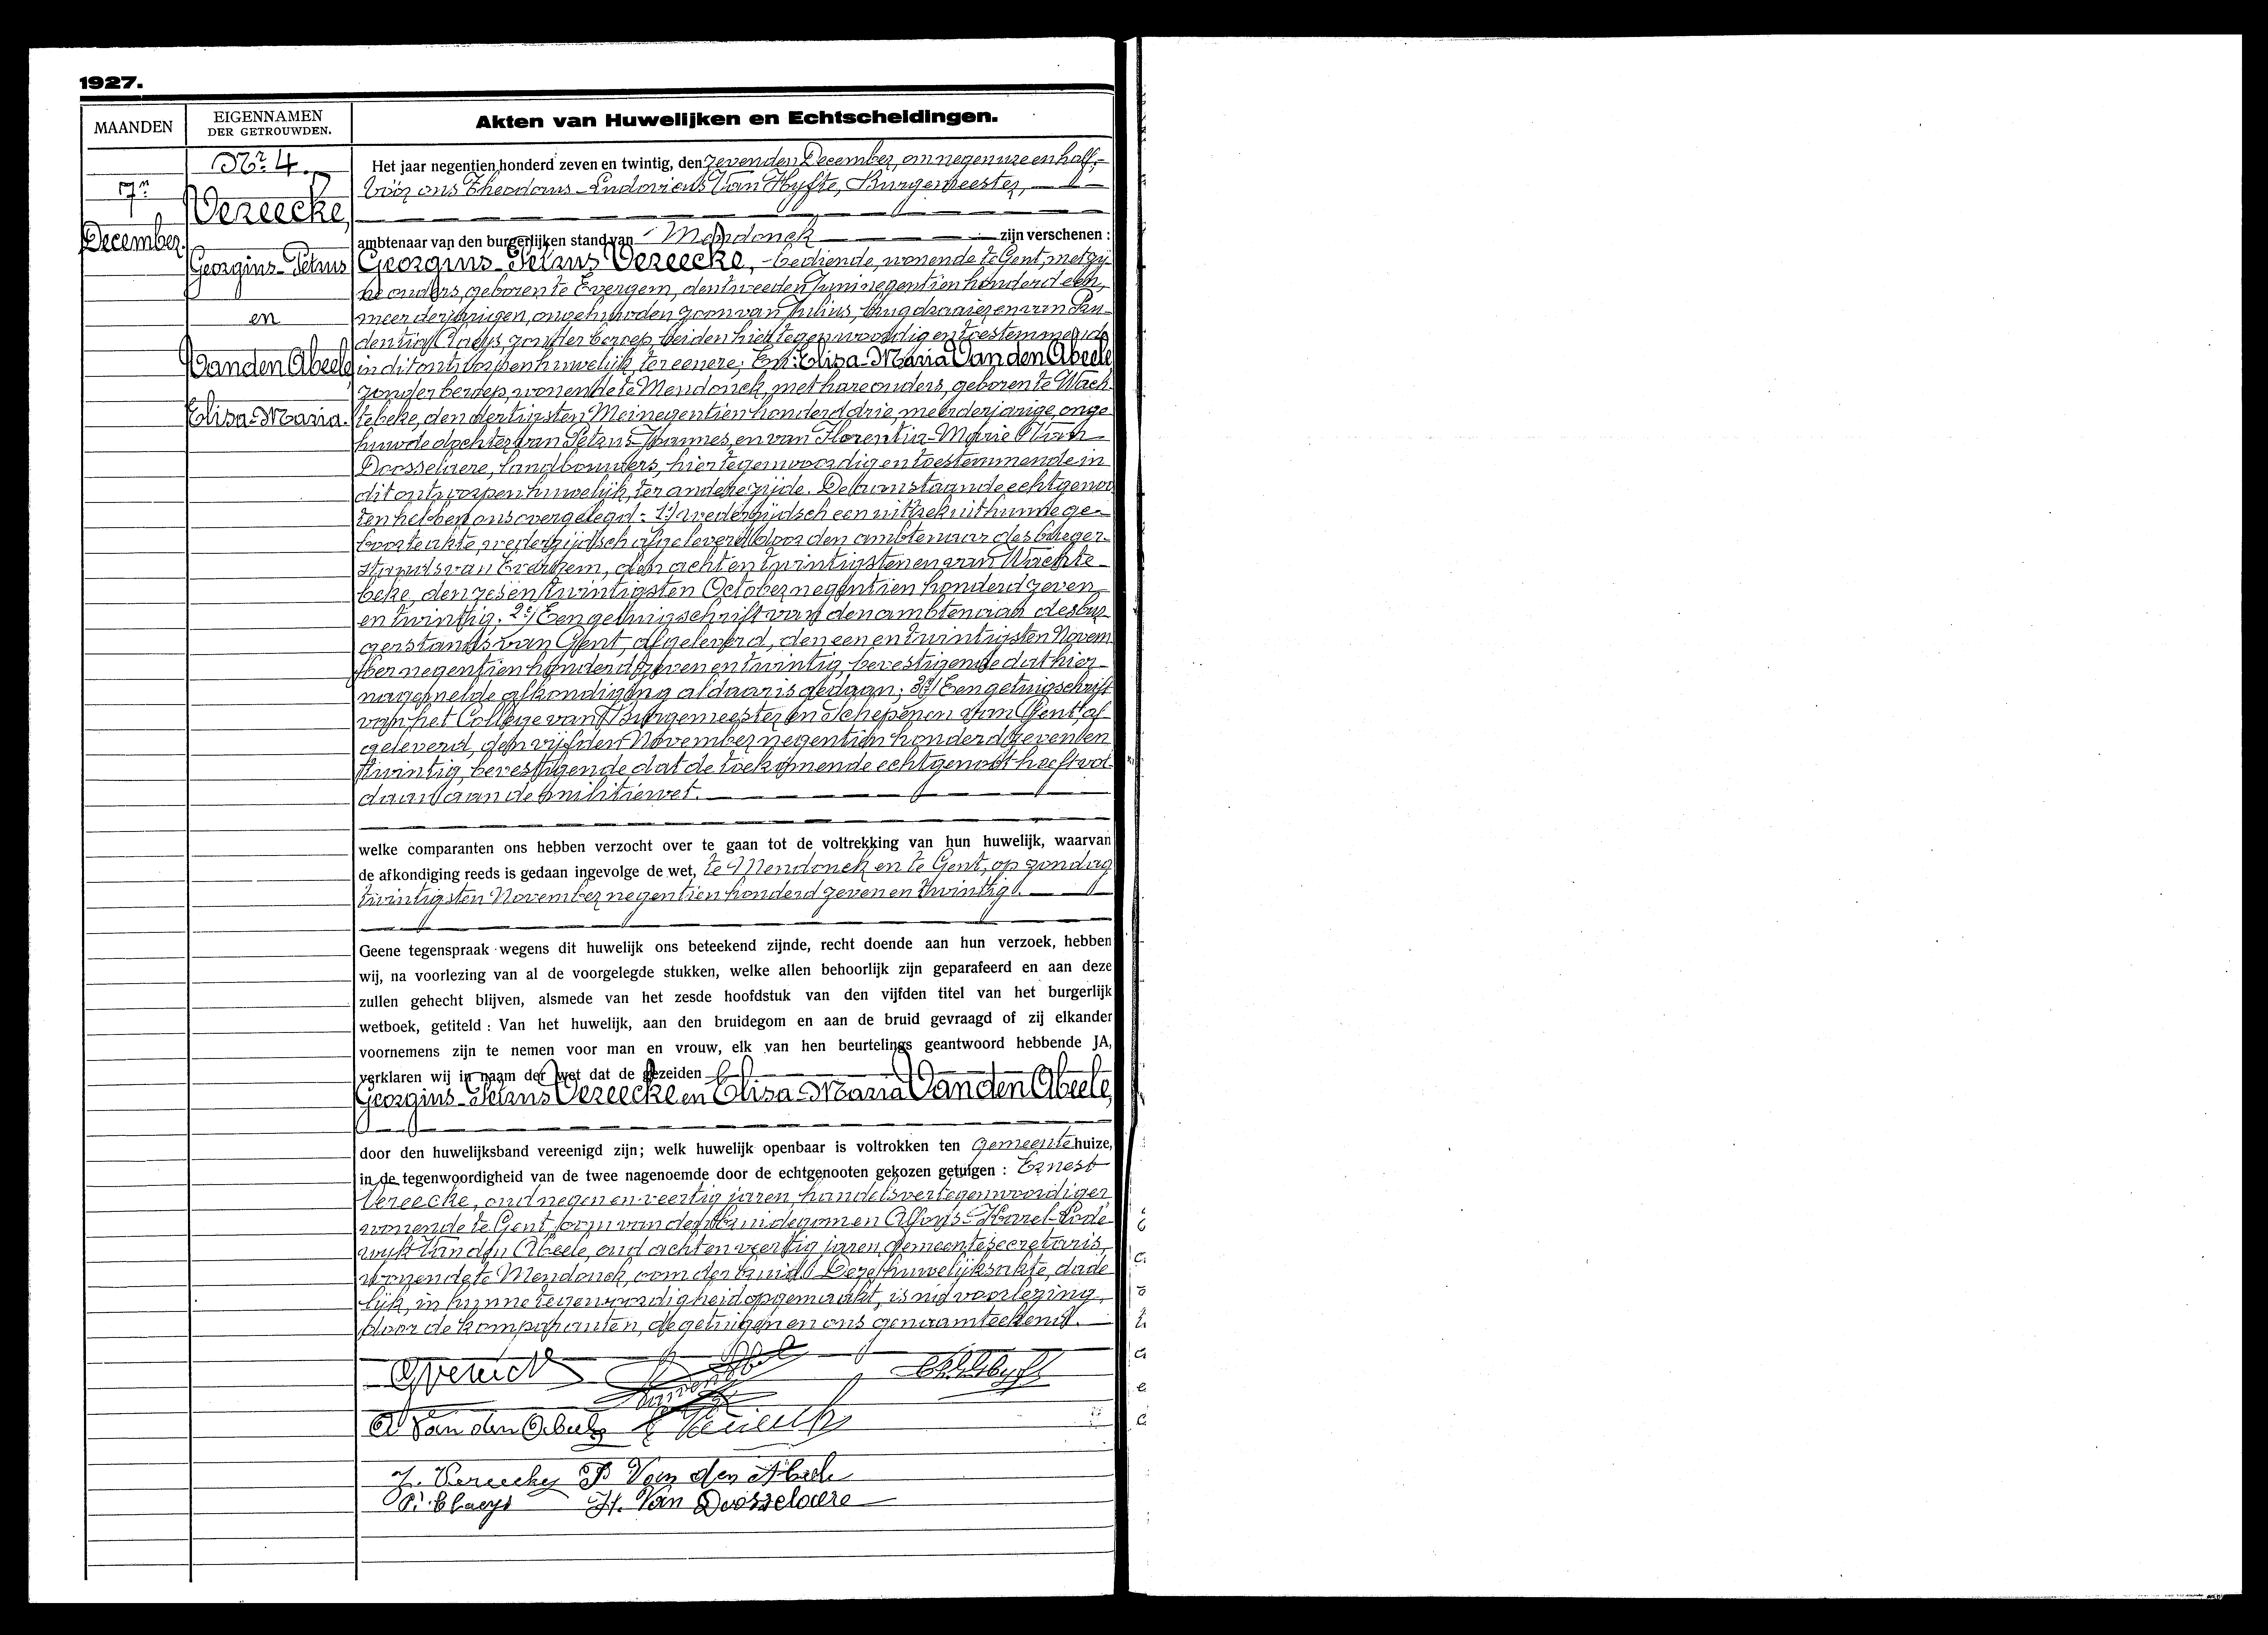 1927.
MAANDEN
EIGENNAMEN
DER GETROUWDEN.
Akten van Huwelijken en Echtscheidingen.
Nr 4.
7n
December.
Vereecke,
Georgius-Petrus
en
Van den Abeele
Elisa-Maria.
Het jaar negentien honderd zeven en twintig, den zevenden December, om negen ure en half,
vóór ons Theodorus-Ludovicus Van Hyfte, Burgemeester,
ambtenaar van den burgerlijken stand van Mendonck zijn verschenen :
Georgius-Petrus Vereecke, bediende, wonende te Gent, met zij
ne ouders, geboren te Evergem, den tweeden Juni negentien honderd een,
meerderjarigen, ongehuwden zoon van Julius, brugdraaier en van Pru
dentia Claeys, zonder beroep, beiden hier tegenwoordig en toestemmende
in dit ontworpen huwelijk, ter eenere; En: Elisa-Maria Van den Abeele,
zonder beroep, wonende te Mendonck, met hare ouders, geboren te Wach
tebeke, den dertigsten Mei negentien honderd drie, meerderjarige, onge
huwde dochter van Petrus-Joannes, en van Florentia-Marie Van
Doosselaere, landbouwers, hier tegenwoordig en toestemmende in
dit ontworpen huwelijk, ter andere zijde. De aanstaande echtgenoo
ten hebben ons overgelegd: 1e/ wederzijdsch een uittreksel uit hunne ge-
boorteakte, wederzijdsch afgeleverd door den ambtenaar des burger-
stands van Evergem, den acht en twintigsten en van Wachte-
beke, den zes en twintigsten October negentien honderd zeven
en twintig. 2e/ Een getuigschrift van den ambtenaar des bur
gerstands van Gent, afgeleverd, den een en twintigsten Novem
ber negentien honderd zeven en twintig, bevestigende dat hier-
nagemelde afkondiging aldaar is gedaan; 3e/ Een getuigschrift
van het College van Burgemeester en Schepenen van Gent, af-
geleverd, den vijfden November negentien honderd zeven en
twintig, bevestigende dat de toekomende echtgenoot heeft vol-
daan aan de militiewet.
welke comparanten ons hebben verzocht over te gaan tot de voltrekking van hun huwelijk, waarvan
de afkondiging reeds is gedaan ingevolge de wet, te Mendonck en te Gent, op zondag
twintigsten November negentien honderd zeven en twintig.
Geene tegenspraak wegens dit huwelijk ons beteekend zijnde, recht doende aan hun verzoek, hebben
wij, na voorlezing van al de voorgelegde stukken, welke allen behoorlijk zijn geparafeerd en aan deze
zullen gehecht blijven, alsmede van het zesde hoofdstuk van den vijfden titel van het burgerlijk
wetboek, getiteld : Van het huwelijk, aan den bruidegom en aan de bruid gevraagd of zij elkander
voornemens zijn te nemen voor man en vrouw, elk van hen beurtelings geantwoord hebbende JA,
verklaren wij in naam der wet dat de gezeiden
Georgius-Petrus Vereecke en Elisa-Maria Van den Abeele,
door den huwelijksband vereenigd zijn; welk huwelijk openbaar is voltrokken ten Gemeentehuize,
in de tegenwoordigheid van de twee nagenoemde door de echtgenooten gekozen getuigen : Ernest
Vereecke, oud negen en veertig jaren, handelsvertegenwoordiger,
wonende te Gent, oom van den bruidegom en Alfons-Karel-Lode
wijk Van den Abeele, oud acht en veertig jaren, gemeentesecretaris,
wonende te Mendonck, oom der bruid. Deze huwelijksakte, dade
lijk, in hunne tegenwoordigheid opgemaakt, is na voorlezing,
door de komparanten, de getuigen en ons genaamteekend.
GVereecke
A Van den Abeele E Vereecke
J. Vereecke P Van den Abeele
P. Claeys H. Van Doosselaere